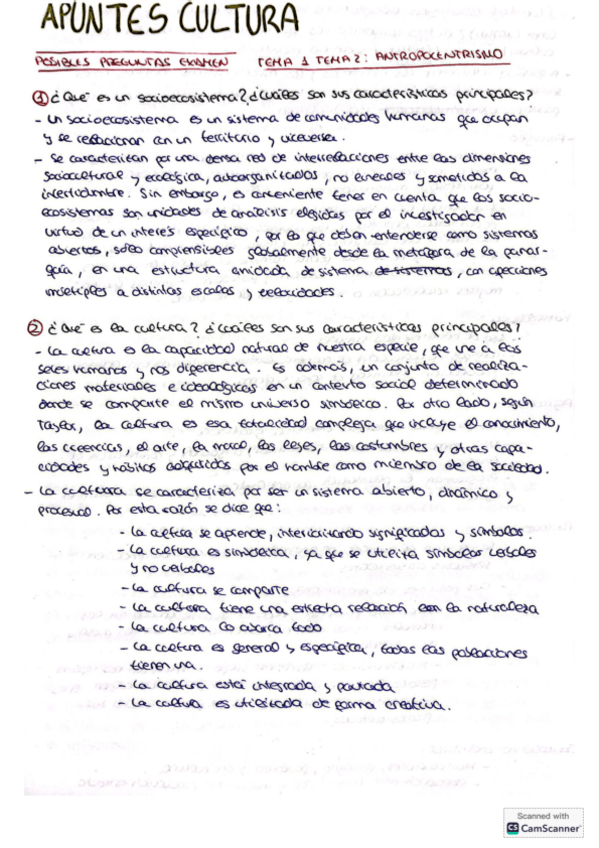 APUNTES CULTURA
POSIBLES PREGUNTAS EXAMEN TEMA 1 TEMA 2: ANTROPOCENTRISMO
① ¿Qué es un socioecosistema? ¿Cuáles son sus características principales?
- Un socioecosistema es un sistema de comunidades humanas que ocupan
y se relacionan con un territorio y viceversa.
- Se caracterizan por una densa red de interrelaciones entre las dimensiones
sociocultural y ecológica, autoorganizados, no lineales y sometidos a la
incertidumbre. Sin embargo, es conveniente tener en cuenta que los socio-
ecosistemas son unidades de análisis elegidas por el investigador en
virtud de un interés específico, por lo que deban entenderse como sistemas
abiertos, sólo comprensibles globalmente desde la metáfora de la panar-
quía, en una estructura anidada de sistema de sistemas, con conexiones
múltiples a distintas escalas y velocidades.
② ¿Qué es la cultura? ¿Cuáles son sus características principales?
- La cultura es la capacidad natural de nuestra especie, que une a los
seres humanos y nos diferencia. Es además, un conjunto de realiza-
ciones materiales e ideológicas en un contexto social determinado
donde se comparte el mismo universo simbólico. Por otro lado, según
Taylor, la cultura es esa totalidad compleja que incluye el conocimiento,
las creencias, el arte, la moral, las leyes, las costumbres y otras capa-
cidades y hábitos adquiridos por el hombre como miembro de la sociedad.
- La cultura se caracteriza por ser un sistema abierto, dinámico y
procesual. Por esta razón se dice que:
- La cultura se aprende, interiorizando significados y símbolos.
- La cultura es simbólica, ya que se utiliza símbolos verbales
y no verbales
- La cultura se comparte
- La cultura tiene una estrecha relación con la naturaleza
- La cultura lo abarca todo
- La cultura es general y específica, todas las poblaciones
tienen una.
- La cultura está integrada y pautada
- La cultura es utilizada de forma creativa.
Scanned with
CS CamScanner